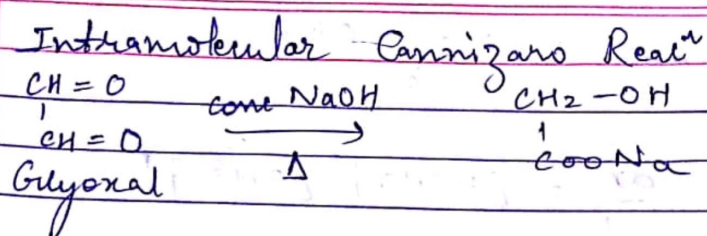 Intramolecular Cannizaro Reacⁿ
CH = O conc NaOH CH2 - OH
CH = O Δ COONa
Glyoxal